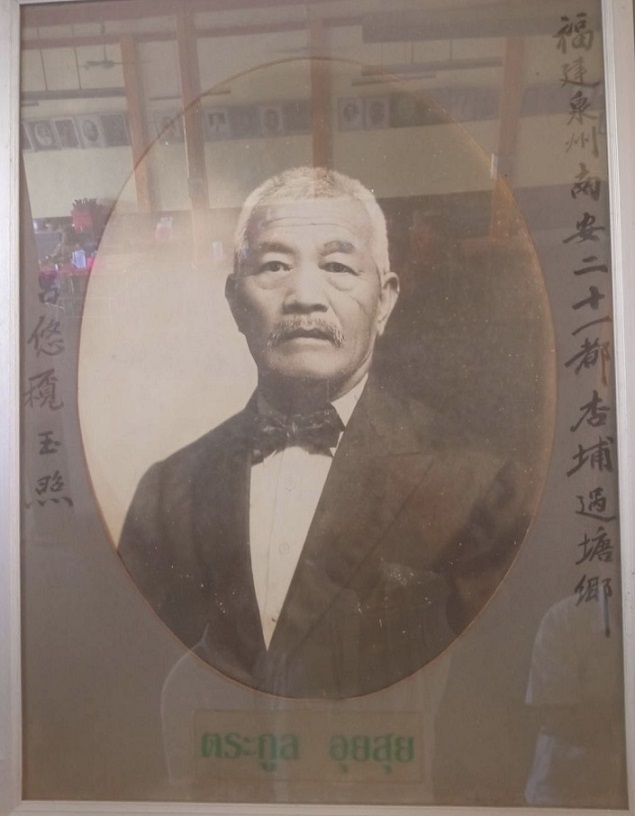 福建泉州南安二十一都杏埔過塘鄉
悠玉照
ตระกูล อุยสุย